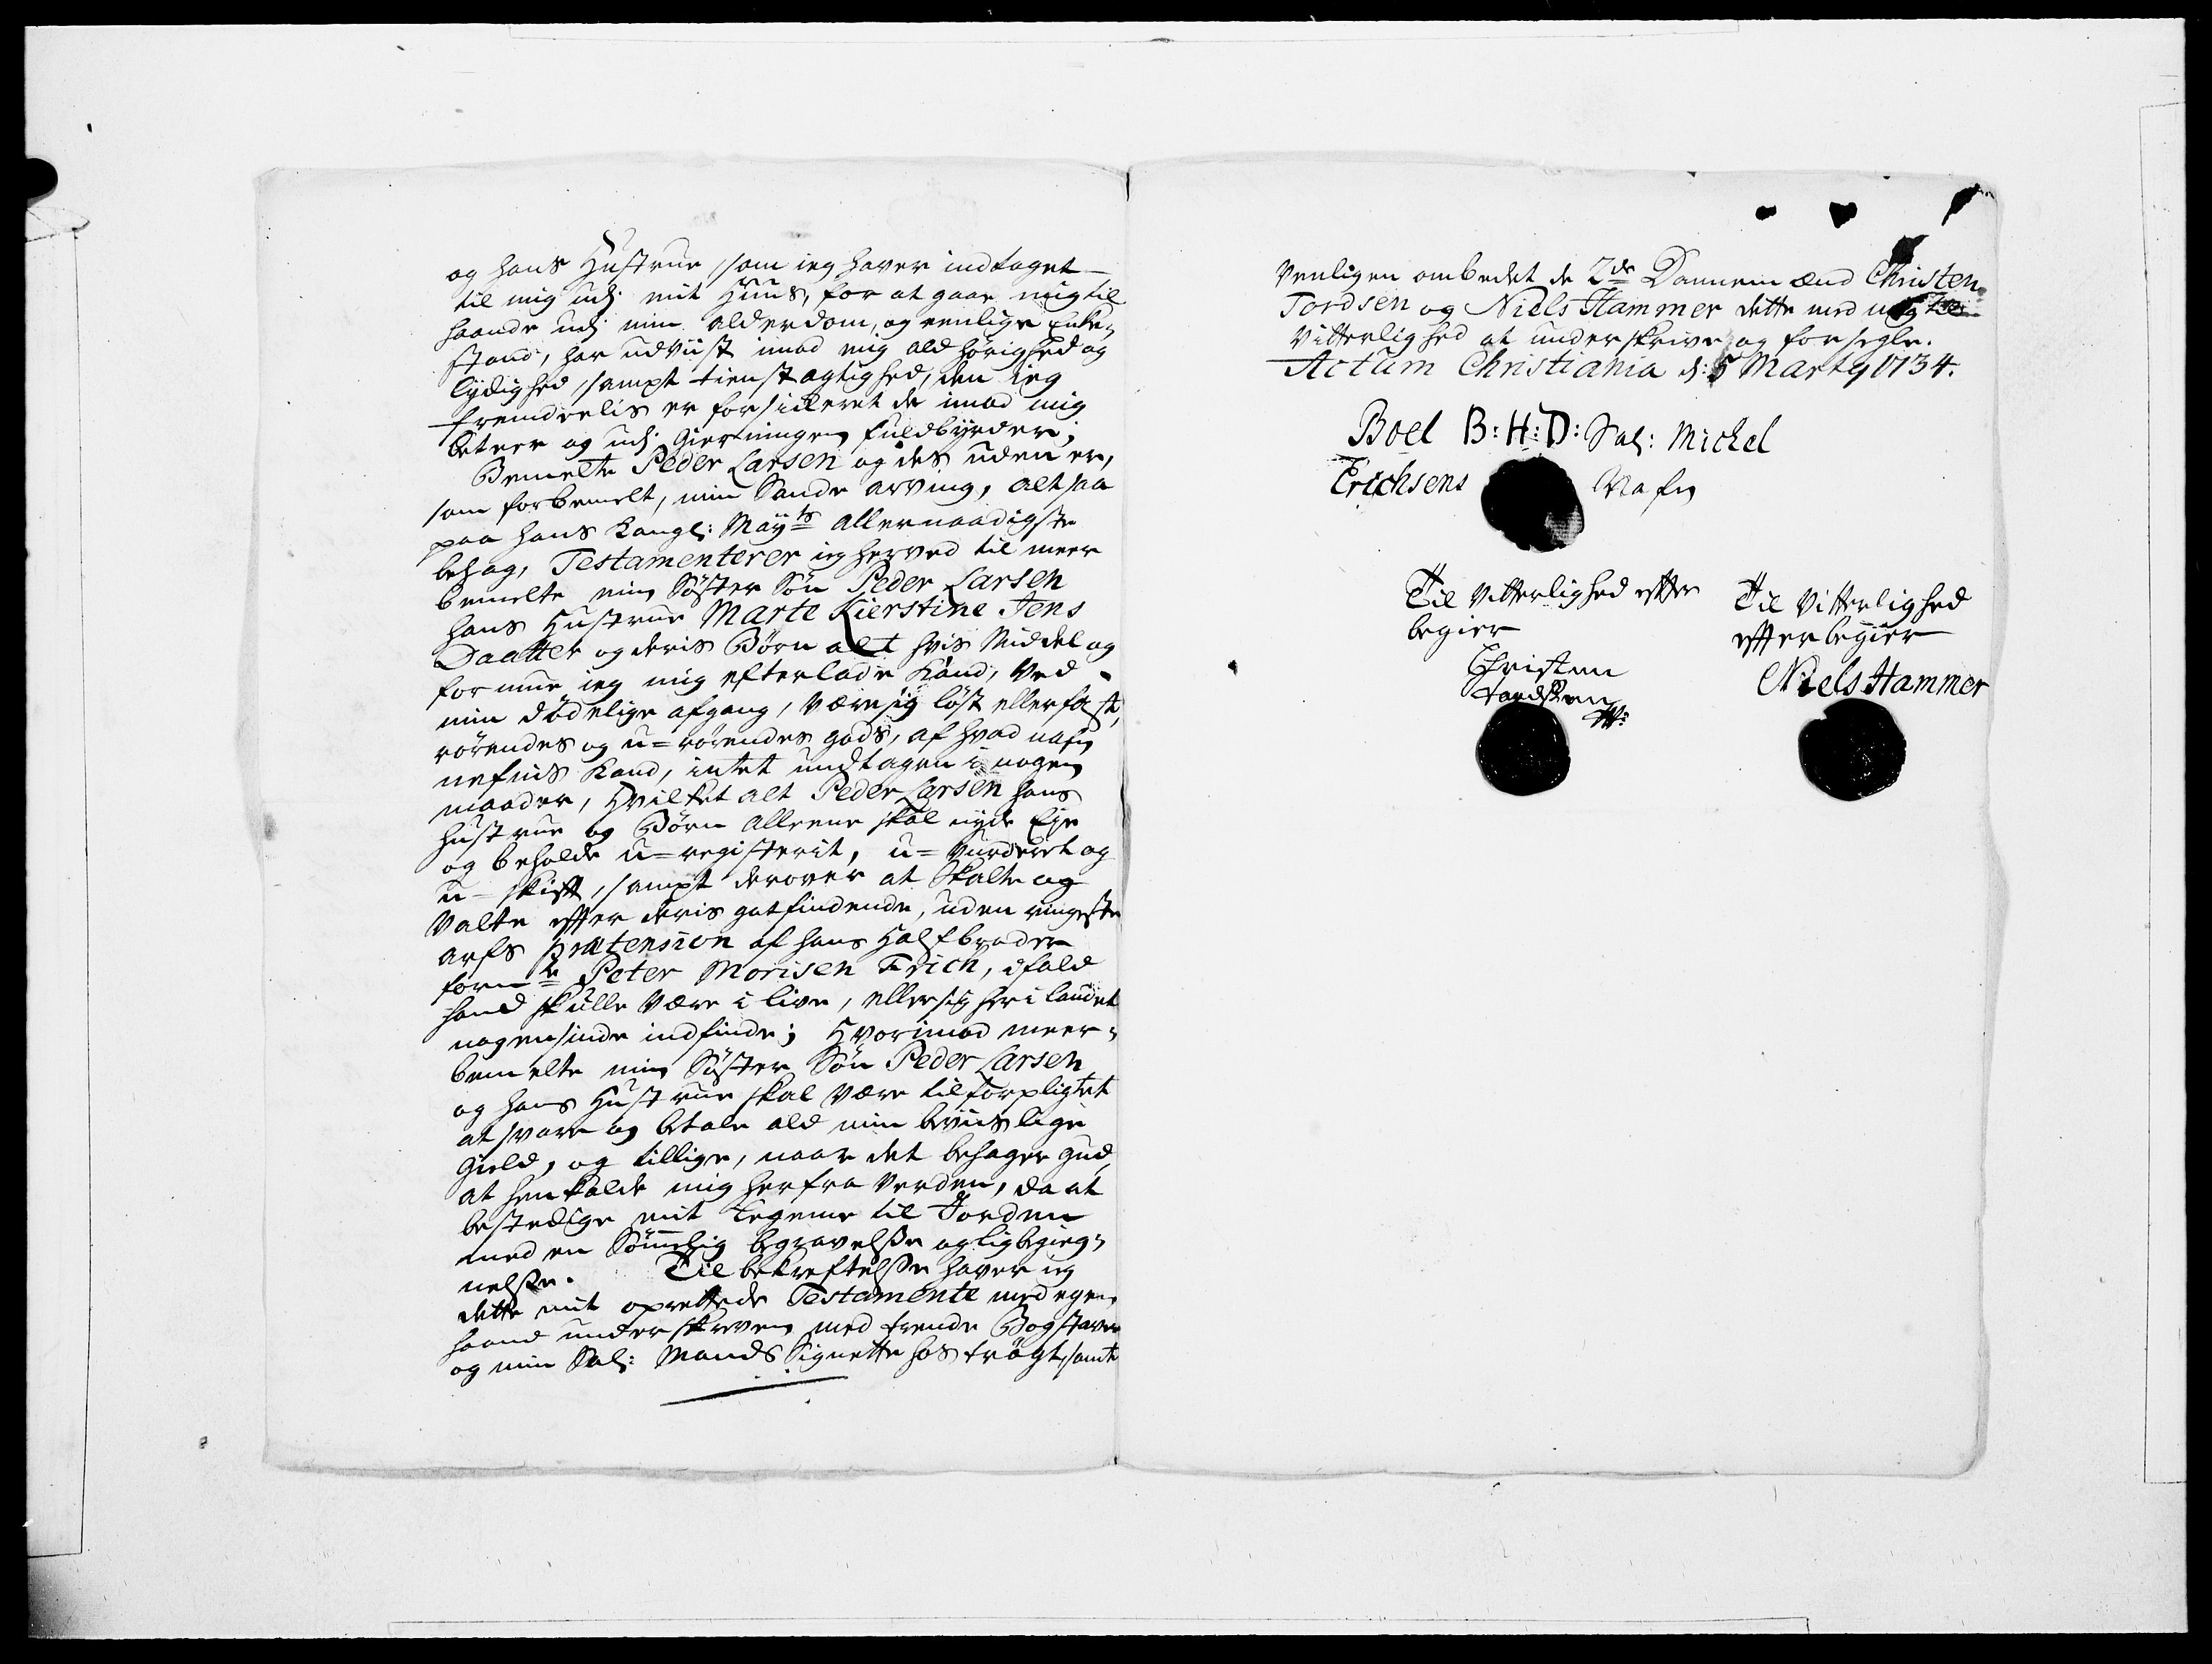 og hans Hustrue, som ieg haver indtaget
til mig udj mit Huus, for at gaae mig til
haande udj min alderdom, og eenlige Enke-
stand, har udviist imod mig ald hörighed og
lydighed, sampt tienstagtighed, den ieg
fremdeelis er forsickeret de imod mig
beteer og udj Gierningen fuldbyrder;
Bemelte Peder Larsen og des uden er,
som forbemelt, min Sande arving, alt saa
paa hans Kongl: Mayts allernaadigste
behag, Testamenterer ieg herved til meer
bemelte min Söster Sön Peder Larsen
hans Hustrue Marte Kierstine Jens
Daatter og deris Börn alt hvis Middel og
formue ieg mig efterlade kand, ved
min dödelige afgang, være sig löst eller fast,
rörendes og u=rörendes gods, af hvad nafn
nefnis kand, intet undtagen i nogen
maader, Hvilket alt Peder Larsen hans
hustrue og Börn alleene skal nyde Eje
og beholde u=registerit, u=vurderet og
u-skift, sampt derover at Skalte og
valte efter deris gotfindende, uden ringeste
arfs prætension af hans Halfbroder
forne Peter Morisen Frich, ifald
hand skulle være i live, eller sig her i landet
nogensinde indfinde; Hvorimod meer-
bemelte min Söster Sön Peder Larsen
og hans Hustrue skal være tilforpligtet
at svare og betale ald min beviislige
gield, og tillige, naar det behager Gud
at henkalde mig herfra verden, da at
bestedige mit Legeme til Jorden
med en Sömmelig begravelsse og ligbegieng-
nelsse. Til bekreftelsse haver ieg
dette mit oprettede Testamente med egen
haand underskreven med trende Bogstaver
og min Sal: Mands Signette hos trögt, samt
venligen ombedet de 2de Dannemænd Christen
Tordsen og Niels Hammer dette med mig til
Vitterlighed at underskrive og forsegle.
Actum Christiania d: 5 Marty 1734.
Boel B:H:D: Sal: Michel
Erichsens Nafn
Til Vitterlighed efter
begier
Christen
Tordsen
Til Vitterlighed
efter begier
Niels Hammer